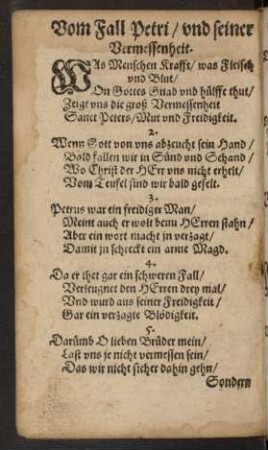 Vom Fall Petri / vnd seiner
Vermessenheit.
WAs Menschen Krafft / was Fleisch
vnd Blut /
On Gottes Gnad vnd hülffe thut /
Zeigt vns die groß Vermessenheit
Sanct Peters / Mut vnd Freidigkeit.
2.
Wenn Gott von vns abzeucht sein Hand /
Bald fallen wir in Sünd vnd Schand /
Wo Christ der HErr vns nicht erhelt /
Vom Teufel sind wir bald gefelt.
3.
Petrus war ein freidiger Man /
Meint auch er wolt beim HErren stahn /
Aber ein wort macht jn verzagt /
Damit jn schreckt ein arme Magd.
4.
Da er thet gar ein schweren Fall /
Verleugnet den HErren drey mal /
Vnd wurd aus seiner Freidigkeit /
Gar ein verzagte Blödigkeit.
5.
Darümb O lieben Brüder mein /
Last vns je nicht vermessen sein /
Das wir nicht sicher dahin gehn /
Sondern